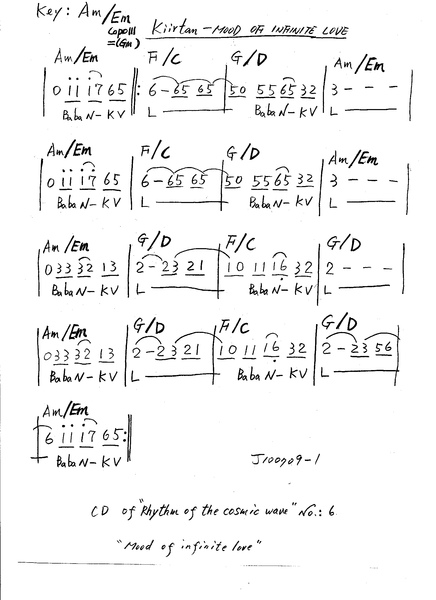 Key: Am/Em Kiirtan - MOOD OF INFINITE LOVE
Capo III
=(Gm)
Am/Em F/C G/D Am/Em
0 ii i7 65 6 - 65 65 50 55 65 32 3 - - -
Baba N - KV L Baba N - KV L
Am/Em F/C G/D Am/Em
0 ii i7 65 6 - 65 65 50 55 65 32 3 - - -
Baba N - KV L Baba N - KV L
Am/Em G/D F/C G/D
0 33 32 13 2 - 23 21 10 11 16 32 2 - - -
Baba N - KV L Baba N - KV L
Am/Em G/D F/C G/D
0 33 32 13 2 - 23 21 10 11 16 32 2 - 23 56
Baba N - KV L Baba N - KV L
Am/Em
6 ii i7 65
Baba N - KV
J100709-1
CD of "Rhythm of the cosmic wave" No.: 6
"Mood of infinite love"